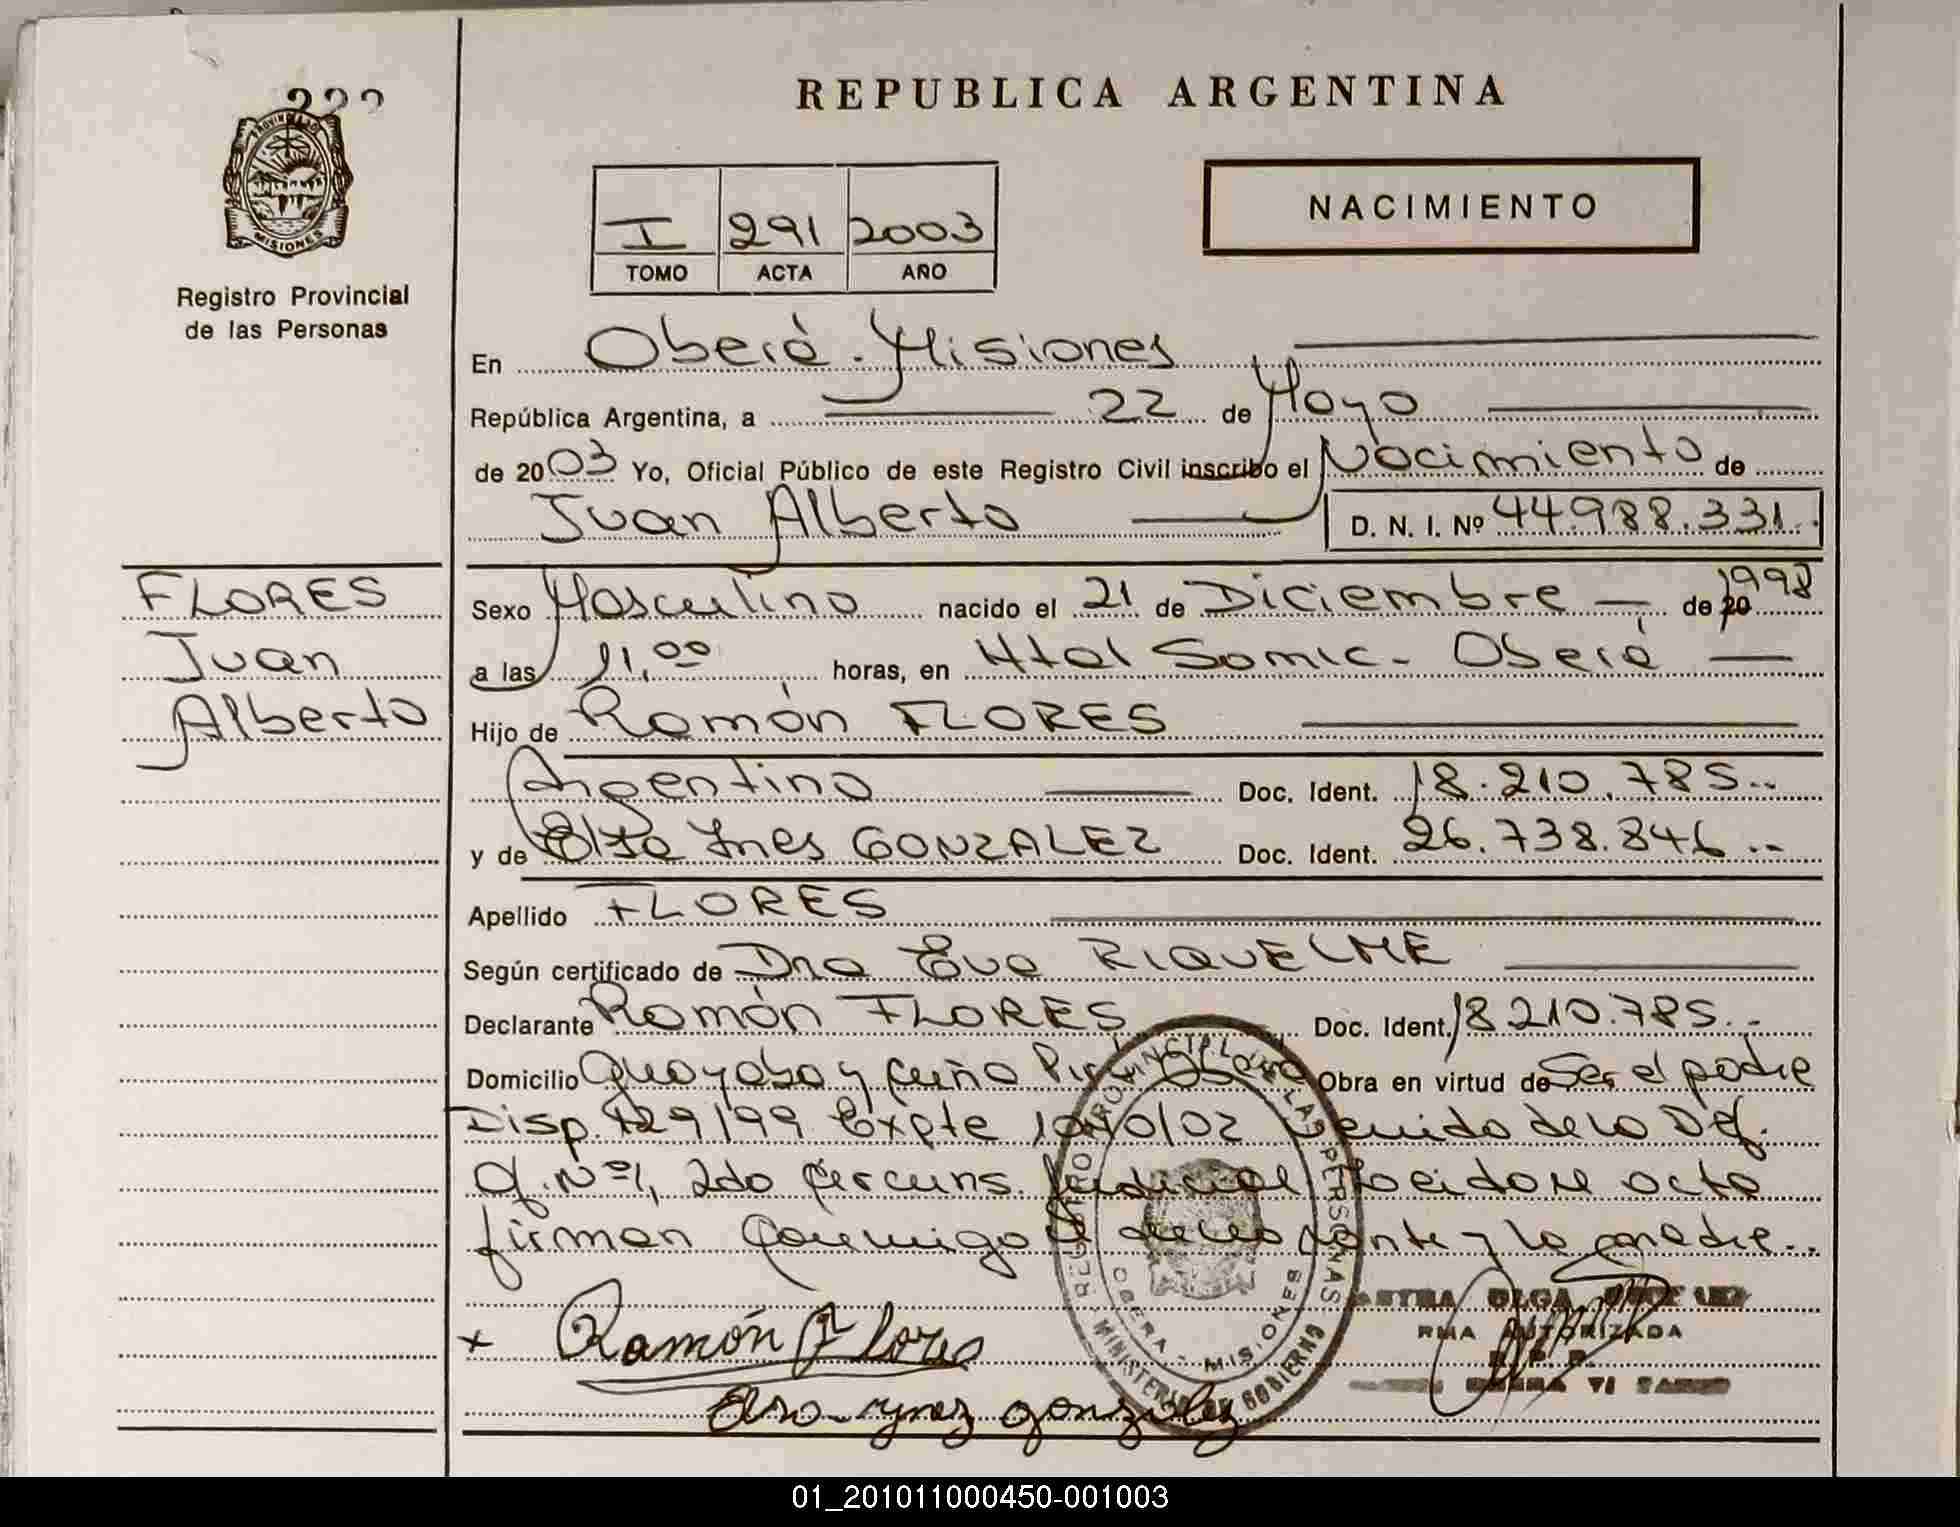 222
REPUBLICA ARGENTINA
PROVINCIA DE
MISIONES
Registro Provincial
de las Personas
I 291 2003
TOMO ACTA AÑO
NACIMIENTO
En Oberá. Misiones
República Argentina, a 22 de Mayo
de 2003 Yo, Oficial Público de este Registro Civil inscribo el Nacimiento de
Juan Alberto D. N. I. Nº 44.988.331.
FLORES
Juan
Alberto
Sexo Masculino nacido el 21 de Diciembre de 20 1998
a las 11,00 horas, en Htal Samic - Oberá
Hijo de Ramón FLORES
Argentino Doc. Ident. 18.210.785..
y de Elsa Ines GONZALEZ Doc. Ident. 26.738.846..
Apellido FLORES
Según certificado de Dra Eva RIQUELME
Declarante Ramón FLORES Doc. Ident. 18.210.785..
Domicilio Guayabo y Obra en virtud de Ser el padre
Disp. 429/99 Expte /02 de la Def.
Of. Nº 1, 2do Circuns. Judicial Leida el acta
firman conmigo el declarante y la madre..
REGISTRO PROVINCIAL DE LAS PERSONAS
MINISTERIO DE GOBIERNO
OBERA - MISIONES
OLGA
FIRMA AUTORIZADA
R. P. P.
x Ramón Flores
Elsa ynez gonzalez
01_201011000450-001003